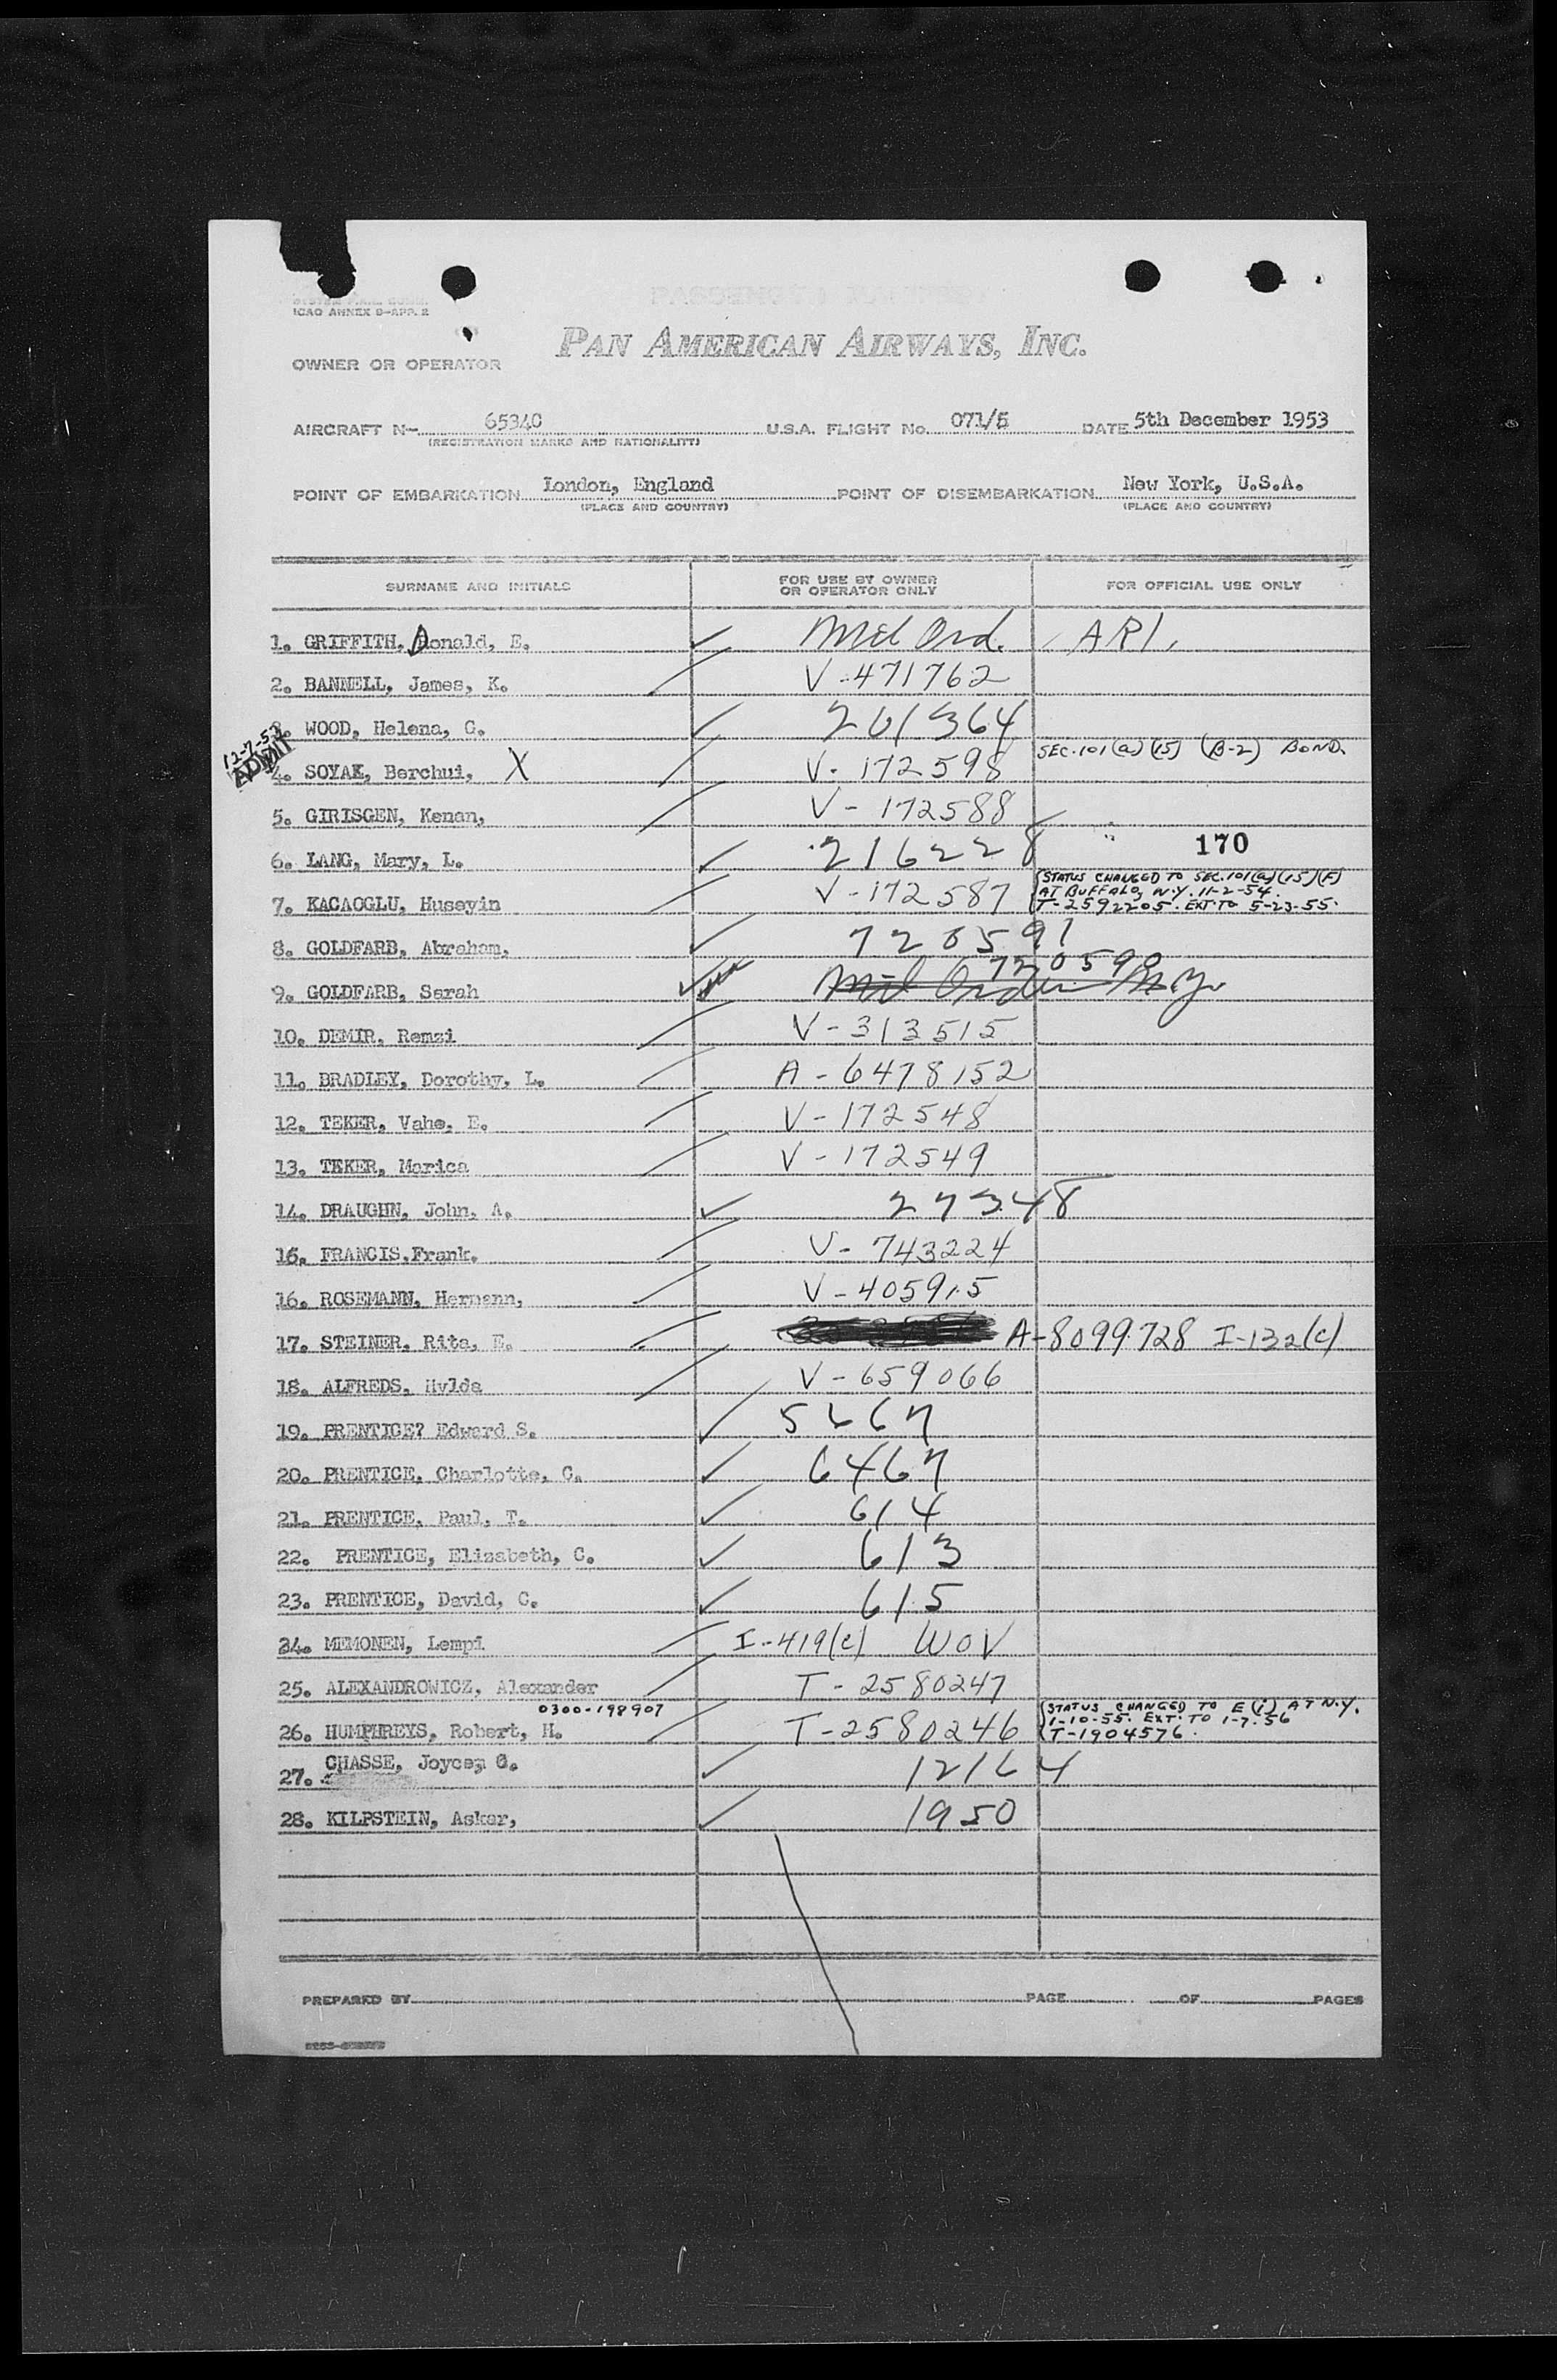 ICAO ANNEX 9-APP. 2
OWNER OR OPERATOR
PAN AMERICAN AIRWAYS, INC.
AIRCRAFT N- 65340 U.S.A. FLIGHT No. 071/5 DATE 5th December 1953
(REGISTRATION MARKS AND NATIONALITY)
POINT OF EMBARKATION London, England POINT OF DISEMBARKATION New York, U.S.A.
(PLACE AND COUNTRY) (PLACE AND COUNTRY)
SURNAME AND INITIALS FOR USE BY OWNER OR OPERATOR ONLY FOR OFFICIAL USE ONLY
1. GRIFFITH, Donald, E. Mil Ord. AR1.
2. BANNELL, James, K. V-471762
3. WOOD, Helena, C. 201364
12-7-53 ADMIT
4. SOYAK, Berchui, X V-172598 SEC.101(a)(15) (B-2) BOND.
5. GIRISGEN, Kenan, V-172588
6. LANG, Mary, L. 216228 170
7. KACAOGLU, Huseyin V-172587 STATUS CHANGED TO SEC.101(a)(15)(F)
AT BUFFALO, N.Y. 11-2-54.
T-2592205. EXT. TO 5-23-55.
8. GOLDFARB, Abraham, 720591
9. GOLDFARB, Sarah Mil Order 720590
10. DEMIR, Remzi V-313515
11. BRADLEY, Dorothy, L. A-6478152
12. TEKER, Vahe, E. V-172548
13. TEKER, Marica V-172549
14. DRAUGHN, John, A. 27348
15. FRANCIS, Frank. V-743224
16. ROSEMANN, Hermann, V-405915
17. STEINER, Rita, E. A-8099728 I-132(c)
18. ALFREDS, Hylda V-659066
19. PRENTICE? Edward S. 5667
20. PRENTICE, Charlotte, C. 6467
21. PRENTICE, Paul, T. 614
22. PRENTICE, Elizabeth, C. 613
23. PRENTICE, David, C. 615
24. MEMONEN, Lempi I-419(c) WOV
25. ALEXANDROWICZ, Alexander T-2580247
0300-198907
26. HUMPHREYS, Robert, H. T-2580246 STATUS CHANGED TO E(i) AT N.Y.
1-10-55. EXT. TO 1-7-56
T-1904576.
27. CHASSE, Joyce, G. 12164
28. KILPSTEIN, Asker, 1950
PREPARED BY PAGE OF PAGES